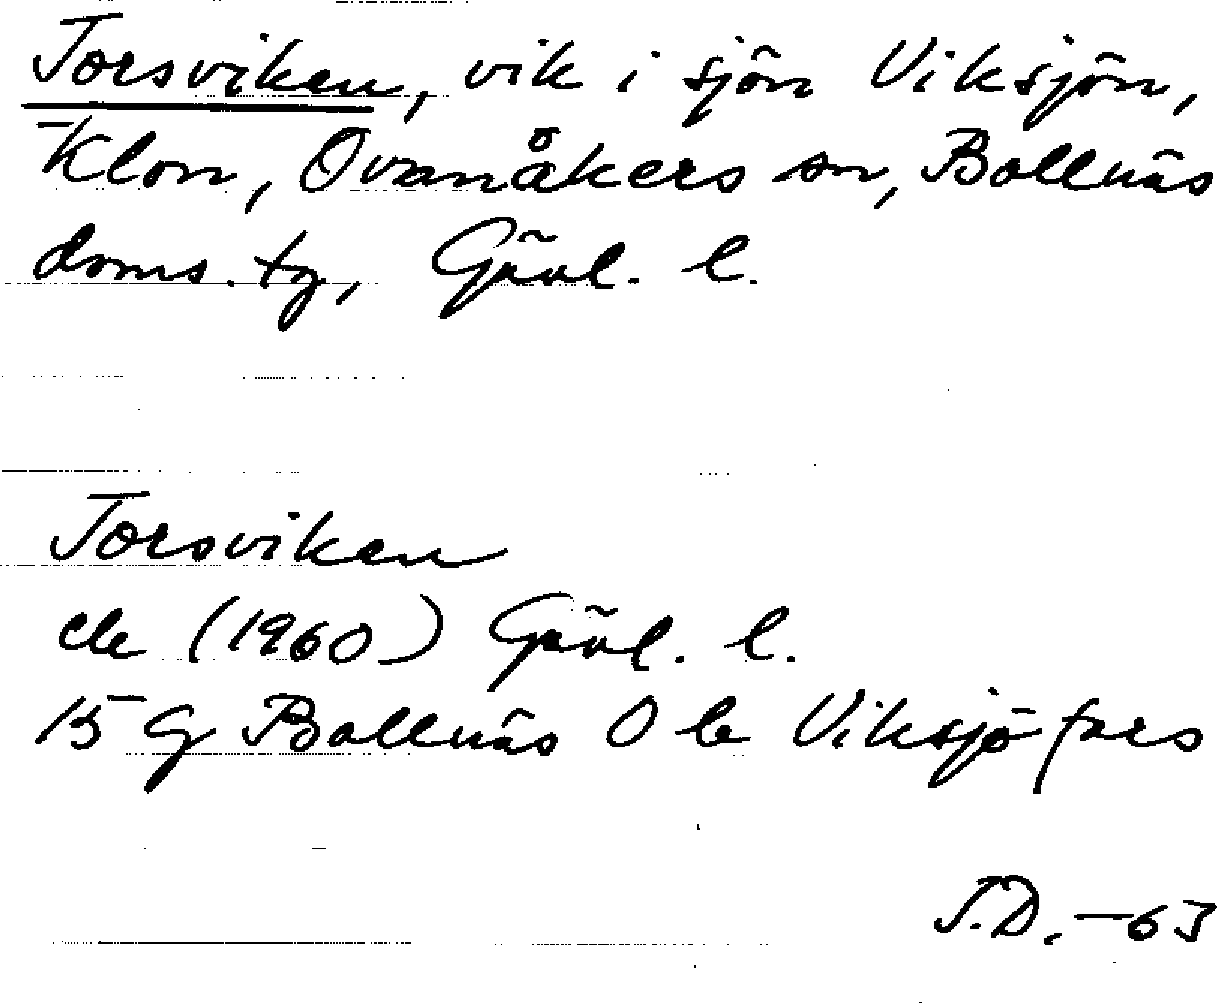 Torsviken, vik i sjön Viksjön,
Klon, Ovanåkers sn, Bollnäs
doms. tg, Gävl. l.
Torsviken
ek (1960) Gävl. l.
15 G Bollnäs 0 b Viksjöfors
J.D. -63